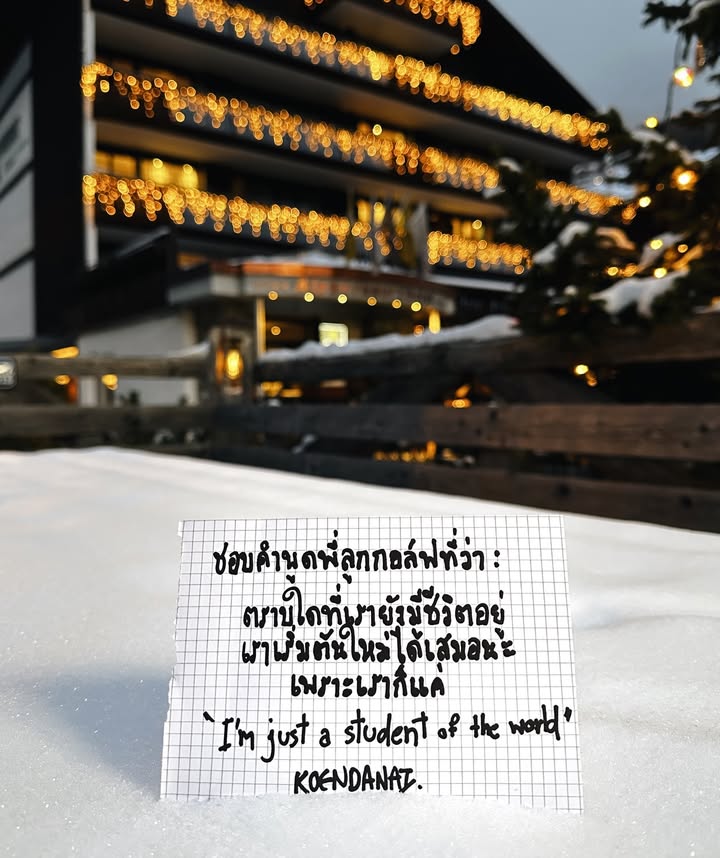 ชอบคำพูดพี่ลูกกอล์ฟที่ว่า :
ตราบใดที่เรายังมีชีวิตอยู่
เราเริ่มต้นใหม่ได้เสมอนะ
เพราะเราก็แค่
"I'm just a student of the world"
KOENDANAI.